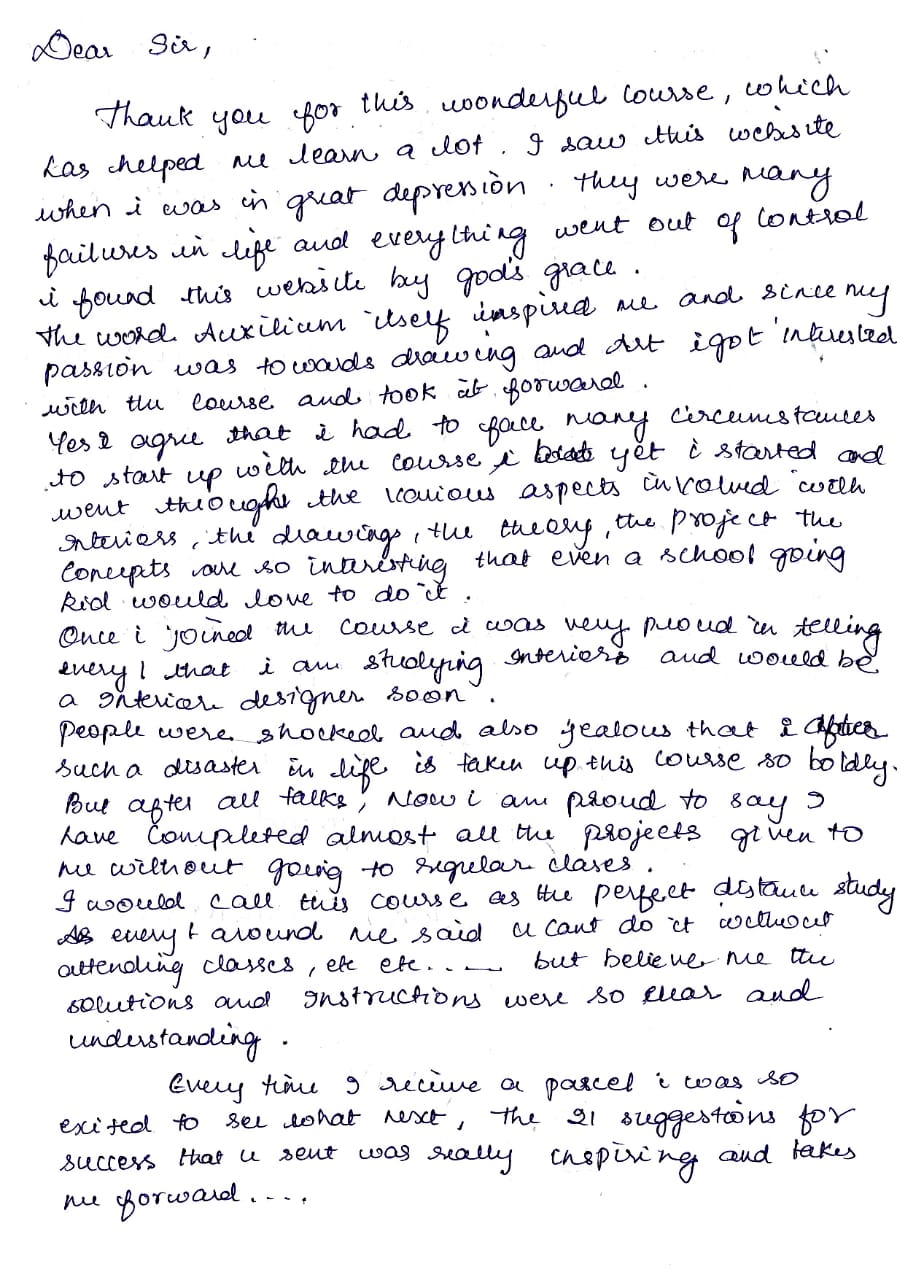 Dear Sir,
Thank you for this wonderful course, which
has helped me learn a lot. I saw this website
when i was in great depression. they were many
failures in life and everything went out of control
i found this website by god's grace.
The word Auxilium itself inspired me and since my
passion was towards drawing and Art i got interested
with the course and took it forward.
Yes I agree that i had to face many circumstances
to start up with the course i yet i started and
went throught the various aspects involved with
Interiors, the drawings, the theory, the project the
Concepts are so interesting that even a school going
kid would love to do it.
Once i joined the course i was very proud in telling
every1 that i am studying Interiors and would be
a Interior designer soon.
People were shocked and also jealous that i After
such a disaster in life is taken up this course so boldly.
But after all talks, Now i am proud to say I
have Completed almost all the projects given to
me without going to regular clases.
I would call this course as the perfect distance study
As every1 around me said u cant do it without
attending classes, etc etc.... but believe me the
solutions and Instructions were so clear and
understanding.
Every time I receive a parcel i was so
exited to see what next, the 21 suggestions for
success that u sent was really inspiring and takes
me forward.....